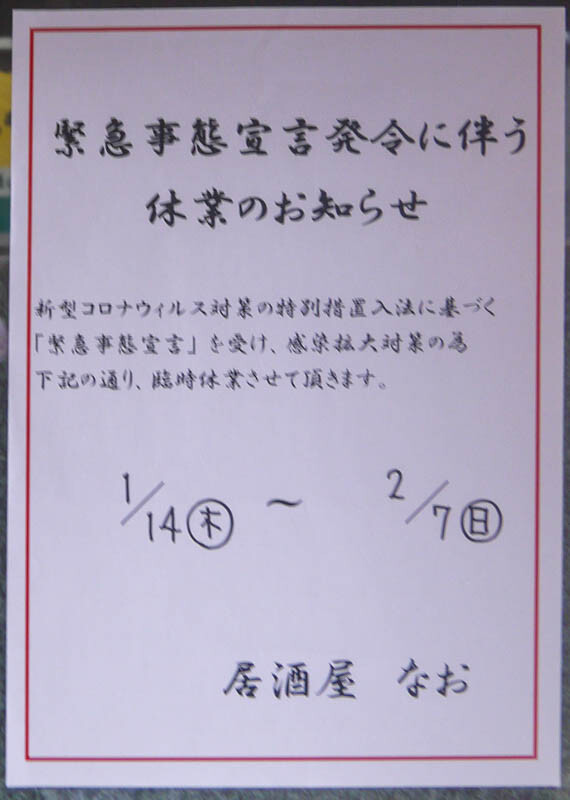 緊急事態宣言発令に伴う
休業のお知らせ
新型コロナウィルス対策の特別措置入法に基づく
「緊急事態宣言」を受け、感染拡大対策の為
下記の通り、臨時休業させて頂きます。
1/14㊍ ~ 2/7㊐
居酒屋 なお